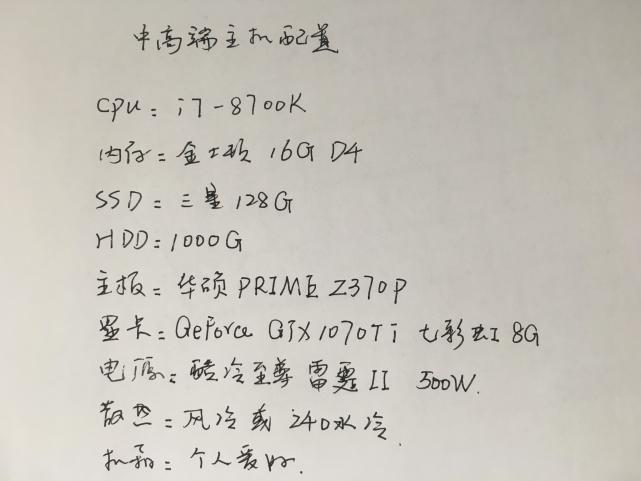 中高端主机配置
CPU：i7-8700K
内存：金士顿 16G D4
SSD：三星 128G
HDD：1000G
主板：华硕 PRIME Z370P
显卡：GeForce GTX1070Ti 七彩虹 8G
电源：酷冷至尊 雷霆II 500W.
散热：风冷或 240水冷.
机箱：个人爱好.